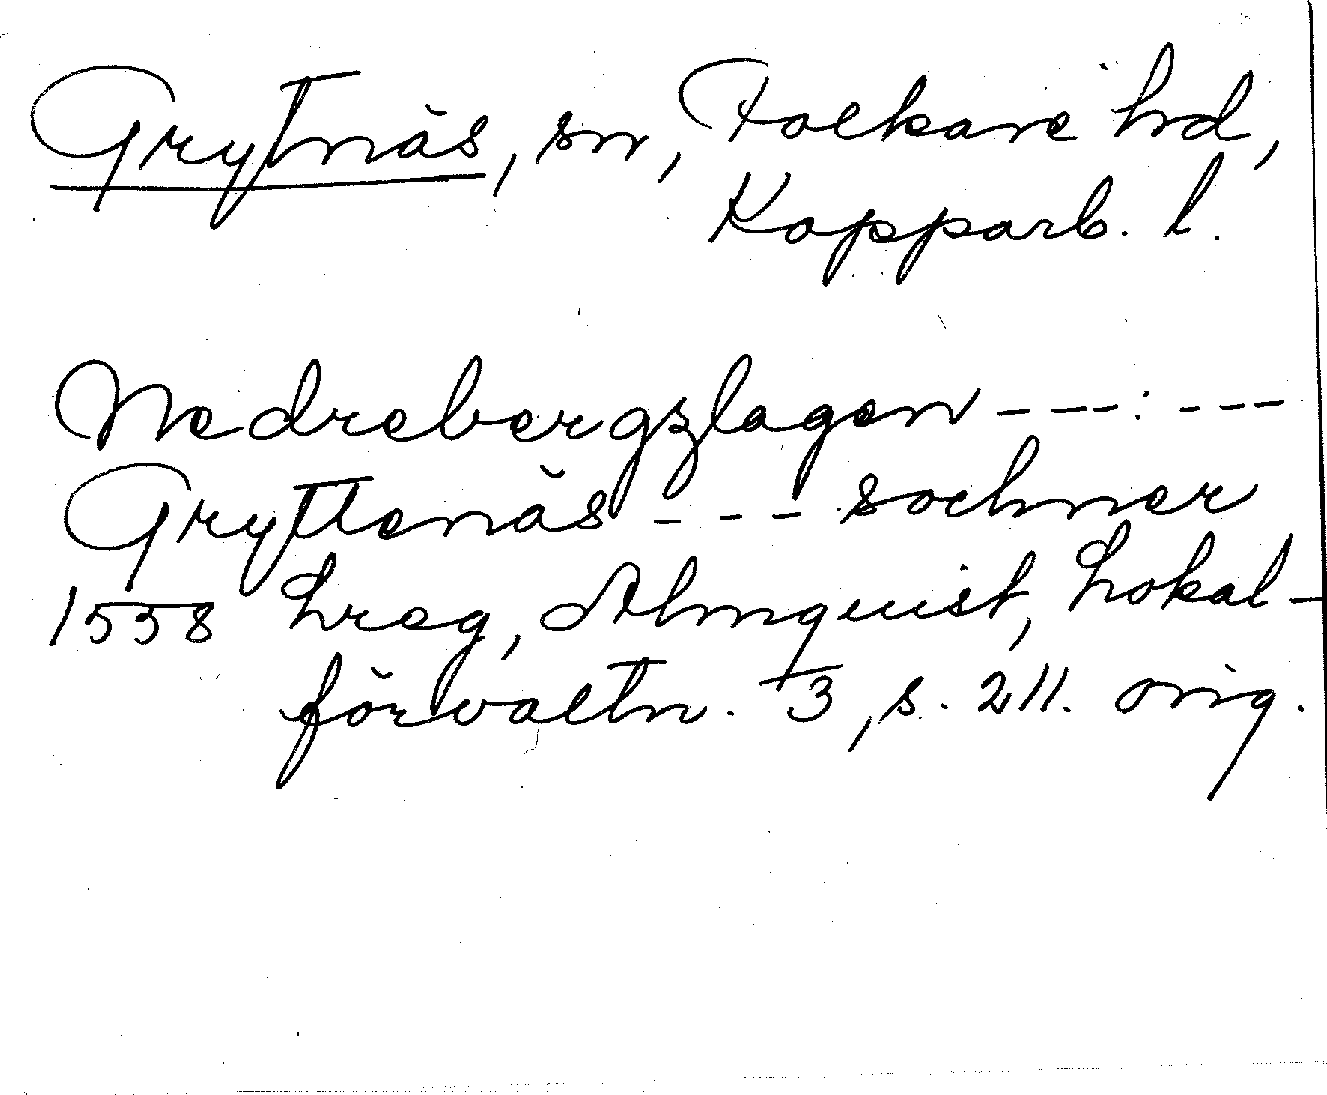 Grytnäs, sn, Folkare hd,
Kopparb. l.
Nedrebergzlagen ---:---
Gryttenäs --- sochner
1558 hreg, Almquist, Lokal-
förvaltn. 3, s. 211. orig.